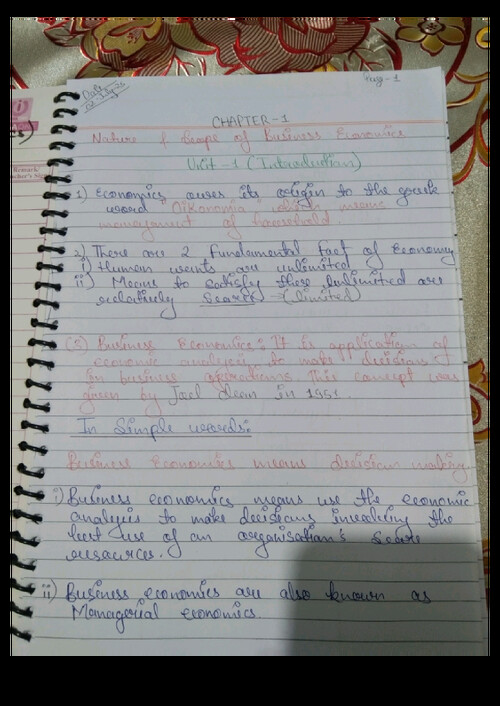 Pag - 1
Date
CHAPTER-1
Nature & Scope of Business Economics
Unit-1 (Introduction)
1) Economics owes its origin to the greek
word "Oikonomia" which means
management of household.
2) There are 2 fundamental fact of Economy
i) Human wants are unlimited
ii) Means to satisfy these unlimited are
relatively Scarer (limited)
(3) Business Economics: It is application of
economic analysis to make decisions
in business operations. This concept was
given by Joel dean in 1951.
In Simple words:
Business Economics means decision making
i) Business economics means use the economic
analysis to make decisions involving the
best use of an organisation's Scare
resources.
ii) Business economics are also known as
Managerial economics.
Remark/